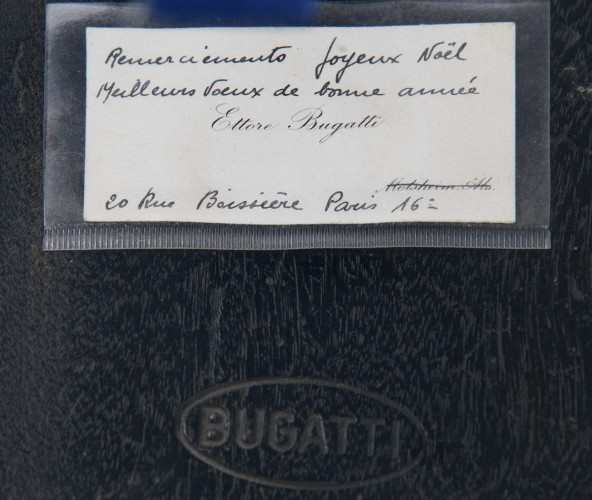 Remerciements Joyeux Noël
Meilleurs Voeux de bonne année
Ettore Bugatti
Molsheim
20 Rue Boissière Paris 16=
BUGATTI